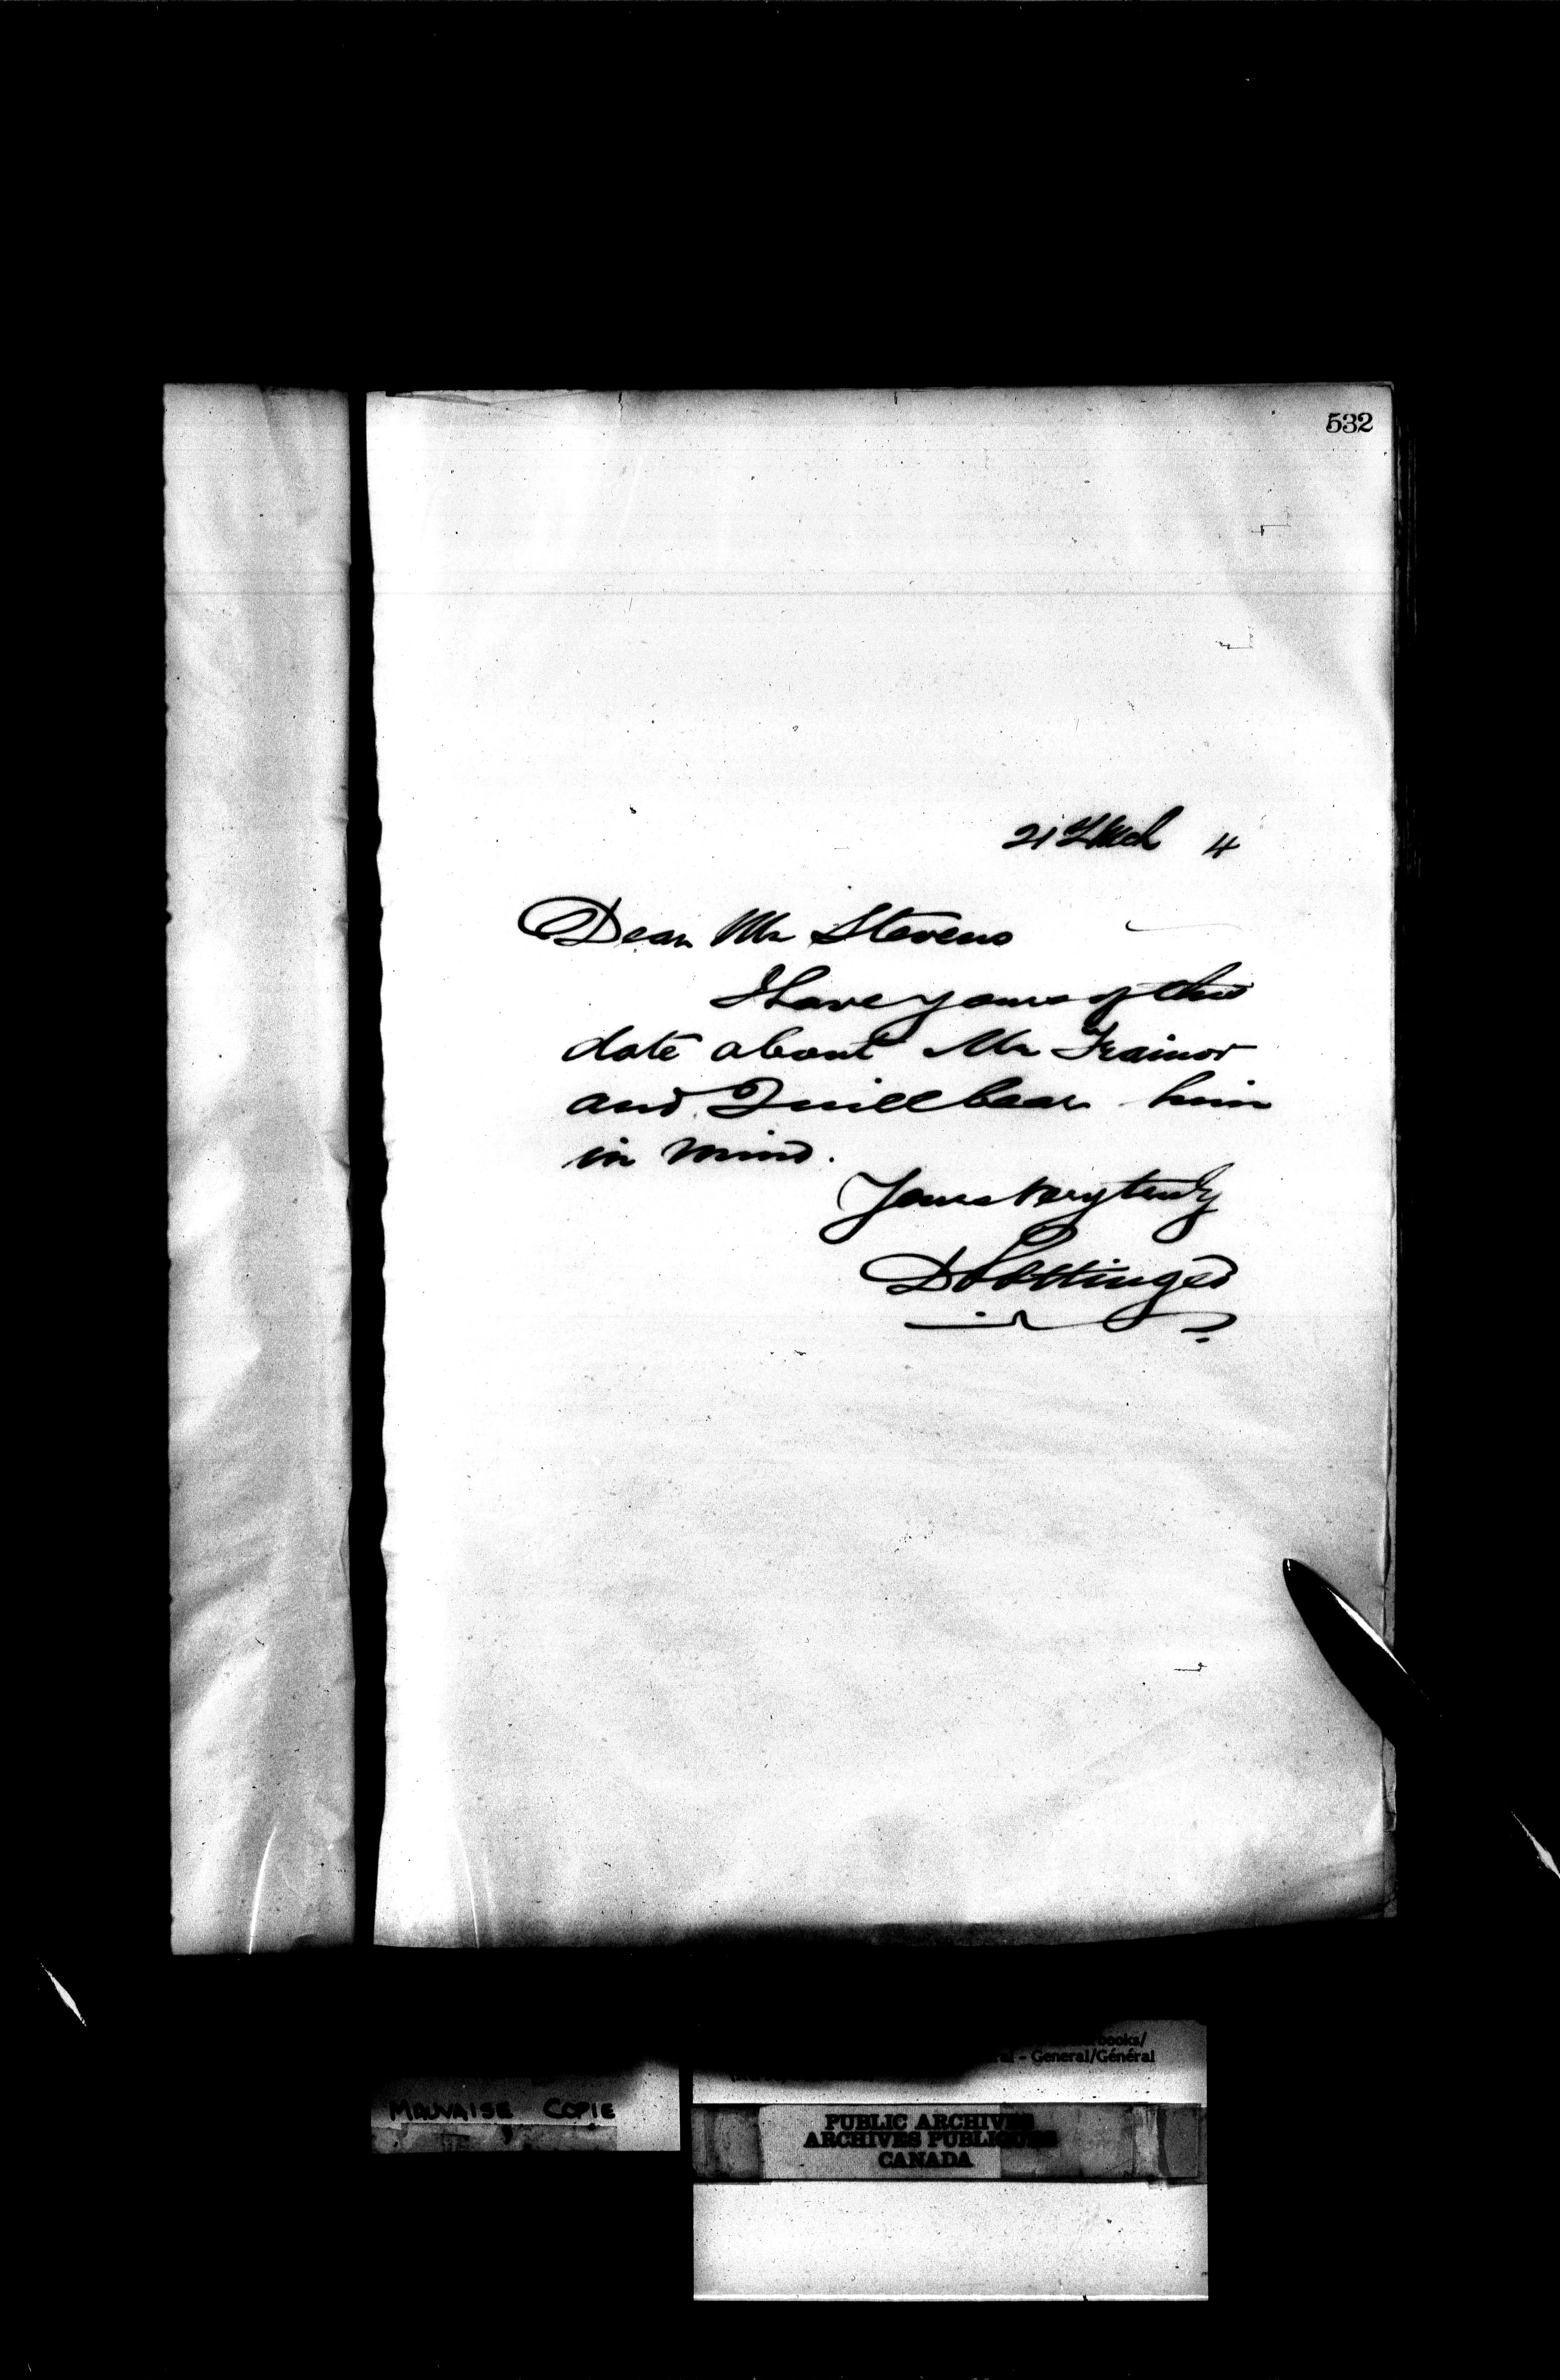 532
21st Mch 4
Dear Mr Stevens
I have yours of this
date about Mr Trainor
and I will bear him
in mind.
Yours very truly
D Pottinger
books/
al - General/Général
MAUVAISE COPIE
PUBLIC ARCHIVES
ARCHIVES PUBLIQUES
CANADA